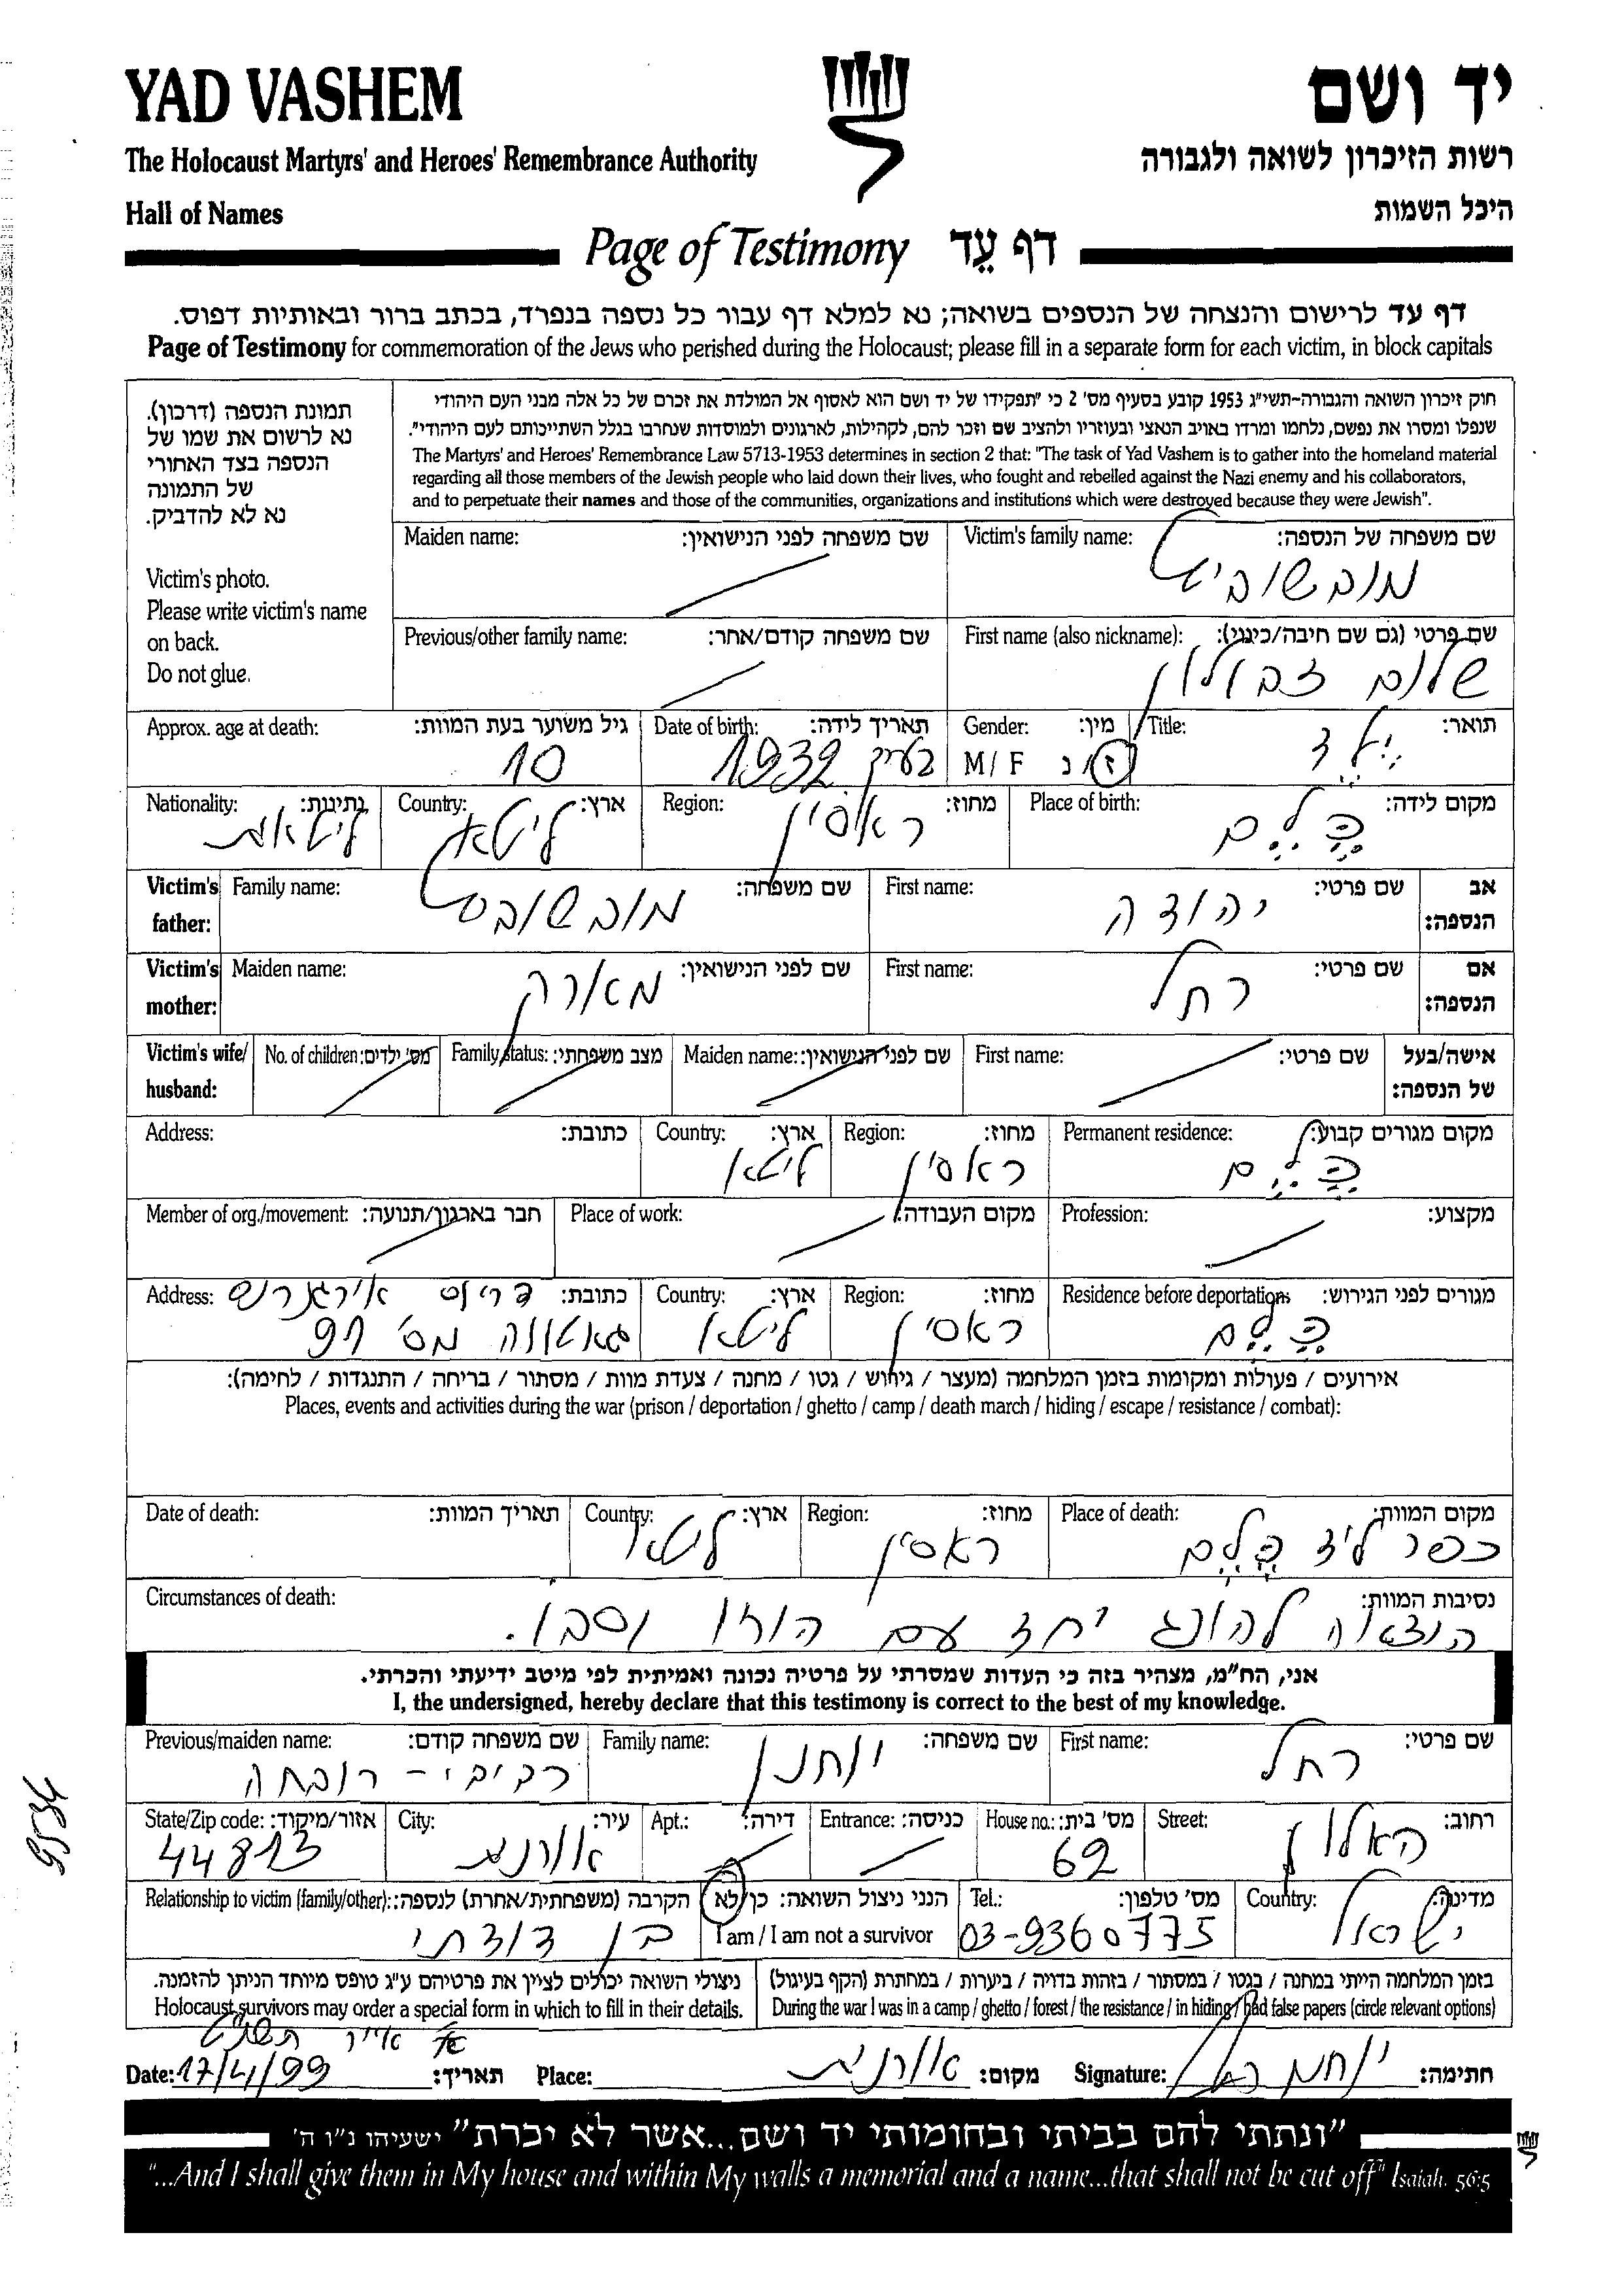 YAD VASHEM
יד ושם
The Holocaust Martyrs' and Heroes' Remembrance Authority
רשות הזיכרון לשואה ולגבורה
Hall of Names
היכל השמות
Page of Testimony דף עֵד
דף עד לרישום והנצחה של הנספים בשואה; נא למלא דף עבור כל נספה בנפרד, בכתב ברור ובאותיות דפוס.
Page of Testimony for commemoration of the Jews who perished during the Holocaust; please fill in a separate form for each victim, in block capitals
תמונת הנספה (דרכון).
נא לרשום את שמו של
הנספה בצד האחורי
של התמונה
נא לא להדביק.
Victim's photo.
Please write victim's name
on back.
Do not glue.
חוק זיכרון השואה והגבורה-תשי"ג 1953 קובע בסעיף מס' 2 כי "תפקידו של יד ושם הוא לאסוף אל המולדת את זכרם של כל אלה מבני העם היהודי
שנפלו ומסרו את נפשם, נלחמו ומרדו באויב הנאצי ובעוזריו ולהציב שם וזכר להם, לקהילות, לארגונים ולמוסדות שנחרבו בגלל השתייכותם לעם היהודי".
The Martyrs' and Heroes' Remembrance Law 5713-1953 determines in section 2 that: "The task of Yad Vashem is to gather into the homeland material
regarding all those members of the Jewish people who laid down their lives, who fought and rebelled against the Nazi enemy and his collaborators,
and to perpetuate their names and those of the communities, organizations and institutions which were destroyed because they were Jewish".
שם משפחה של הנספה: Victim's family name:
מובשוביץ
שם משפחה לפני הנישואין: Maiden name:
שם פרטי (גם שם חיבה/כינוי): First name (also nickname):
שלום זבולון
שם משפחה קודם/אחר: Previous/other family name:
תואר: Title:
ילד
מין: Gender:
ז/נ M/F
תאריך לידה: Date of birth:
בערך 1932
גיל משוער בעת המוות: Approx. age at death:
10
מקום לידה: Place of birth:
קלם
מחוז: Region:
ראסיין
ארץ: Country:
ליטא
נתינות: Nationality:
ליטאית
אב הנספה: Victim's father:
שם פרטי: First name:
יהודה
שם משפחה: Family name:
מובשוביץ
אם הנספה: Victim's mother:
שם פרטי: First name:
רחל
שם לפני הנישואין: Maiden name:
אישה/בעל של הנספה: Victim's wife/husband:
שם פרטי: First name:
שם לפני הנישואין: Maiden name:
מצב משפחתי: Family status:
מס' ילדים: No. of children:
מקום מגורים קבוע: Permanent residence:
קלם
מחוז: Region:
ראסיין
ארץ: Country:
ליטא
כתובת: Address:
מקצוע: Profession:
מקום העבודה: Place of work:
חבר בארגון/תנועה: Member of org./movement:
מגורים לפני הגירוש: Residence before deportation:
קלם
מחוז: Region:
ראסיין
ארץ: Country:
ליטא
כתובת: Address:
מס' 91
אירועים / פעולות ומקומות בזמן המלחמה (מעצר / גירוש / גטו / מחנה / צעדת מוות / מסתור / בריחה / התנגדות / לחימה):
Places, events and activities during the war (prison / deportation / ghetto / camp / death march / hiding / escape / resistance / combat):
מקום המוות: Place of death:
כפר ליד קלם
מחוז: Region:
ראסיין
ארץ: Country:
ליטא
תאריך המוות: Date of death:
נסיבות המוות: Circumstances of death:
הוצאה להורג יחד עם הוריו וסבו.
אני, הח"מ, מצהיר בזה כי העדות שמסרתי על פרטיה נכונה ואמיתית לפי מיטב ידיעתי והכרתי.
I, the undersigned, hereby declare that this testimony is correct to the best of my knowledge.
שם פרטי: First name:
רחל
שם משפחה: Family name:
יוחנן
שם משפחה קודם: Previous/maiden name:
רביבי -
רחוב: Street:
האלון
מס' בית: House no.:
62
כניסה: Entrance:
דירה: Apt.:
עיר: City:
אורנית
אזור/מיקוד: State/Zip code:
44813
מדינה: Country:
ישראל
מס' טלפון: Tel.:
03-9360775
הנני ניצול השואה: כן/לא
I am / I am not a survivor
הקרבה (משפחתית/אחרת) לנספה: Relationship to victim (family/other):
בן דודתי
בזמן המלחמה הייתי במחנה / בגטו / במסתור / בזהות בדויה / ביערות / במחתרת (הקף בעיגול)
During the war I was in a camp / ghetto / forest / the resistance / in hiding / had false papers (circle relevant options)
ניצולי השואה יכולים לציין את פרטיהם ע"ג טופס מיוחד הניתן להזמנה.
Holocaust survivors may order a special form in which to fill in their details.
א' אייר תשנ"ט
חתימה: יוחנן רחל Signature:
מקום: אורנית Place:
תאריך: 17/4/99 Date:
"ונתתי להם בביתי ובחומותי יד ושם...אשר לא יכרת" ישעיהו נ"ו ה'
"...And I shall give them in My house and within My walls a memorial and a name...that shall not be cut off" Isaiah. 56:5